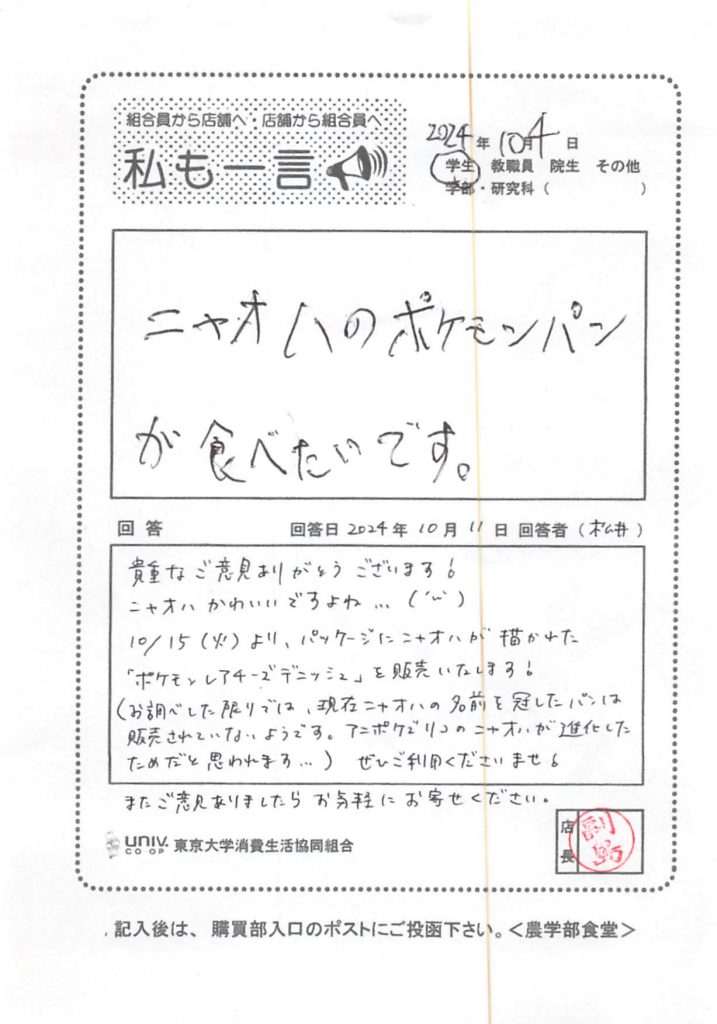 組合員から店舗へ・店舗から組合員へ
私も一言
2024年 10月 4日
学生 教職員 院生 その他
学部・研究科（　　　　）
ニャオハのポケモンパン
が食べたいです。
回答 回答日 2024年 10月 11日 回答者（松井）
貴重なご意見ありがとうございます!
ニャオハかわいいですよね…(´ω`)
10/15(火)より、パッケージにニャオハが描かれた
「ポケモンレアチーズデニッシュ」を販売いたします!
(お調べした限りでは、現在ニャオハの名前を冠したパンは
販売されていないようです。アニポケでリコのニャオハが進化した
ためだと思われます…) ぜひご利用くださいませ!
またご意見ありましたらお気軽にお寄せください。
UNIV.
CO-OP 東京大学消費生活協同組合
店長
記入後は、購買部入口のポストにご投函下さい。＜農学部食堂＞